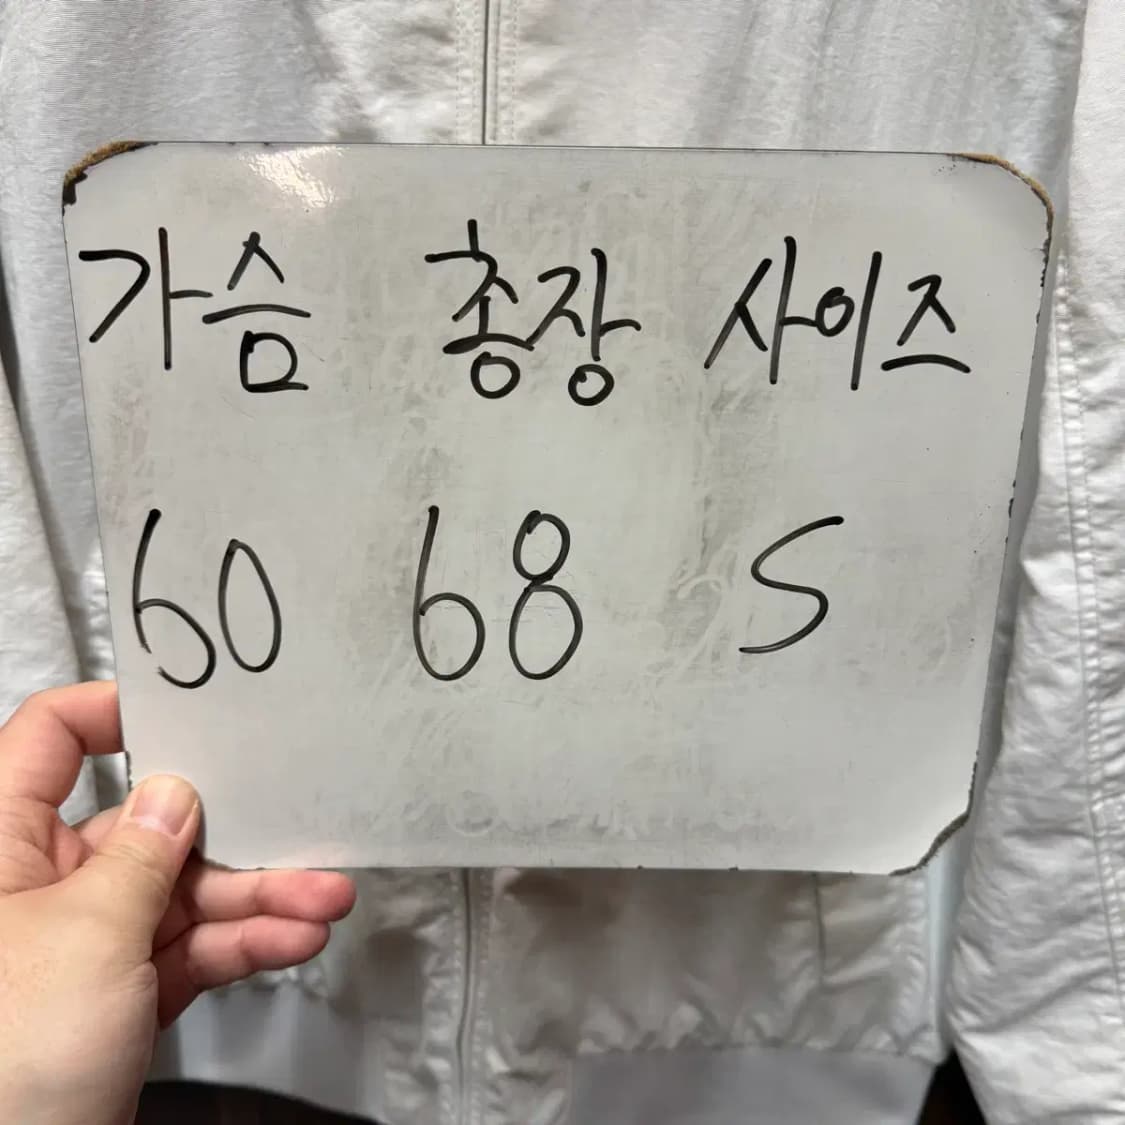 가슴 총장 사이즈
60 68 S